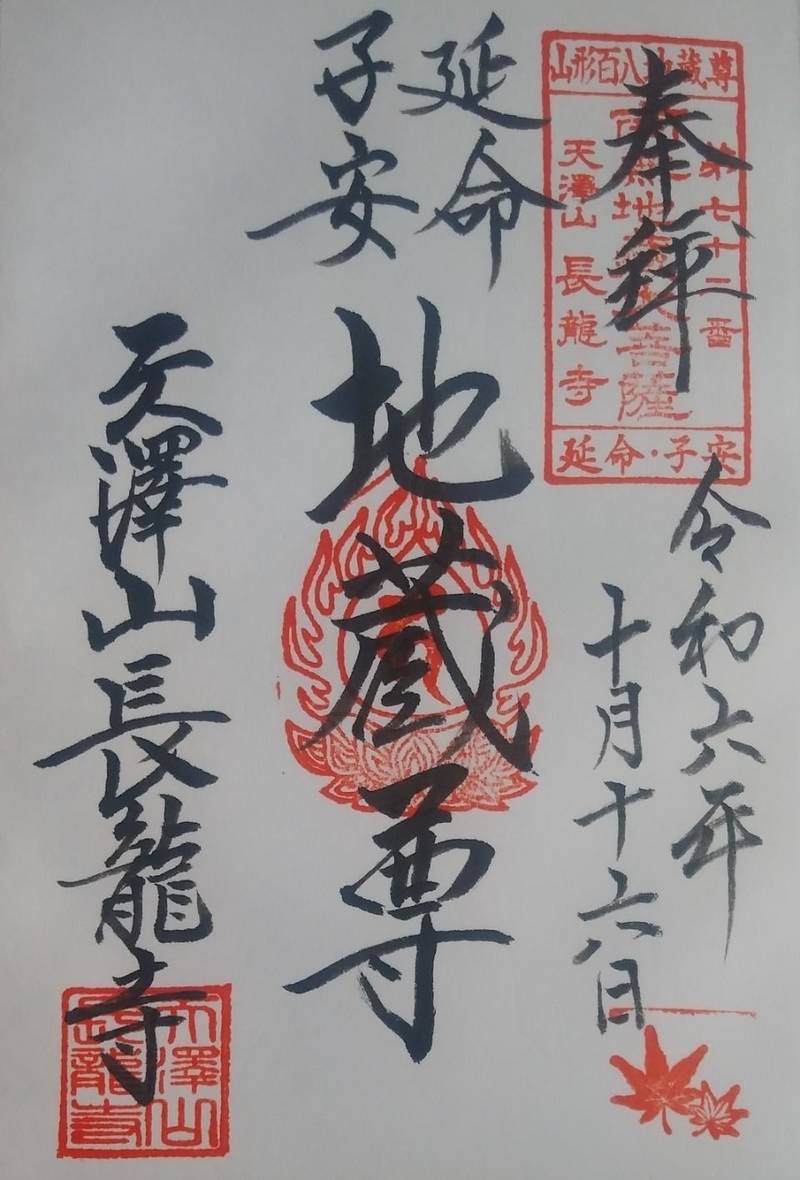 奉拝
山形百八地蔵尊
第七十二番
南無地蔵大菩薩
天澤山 長龍寺
延命・子安
令和六年
十月十六日
延命
子安
地蔵尊
天澤山長龍寺
天澤山
長龍寺